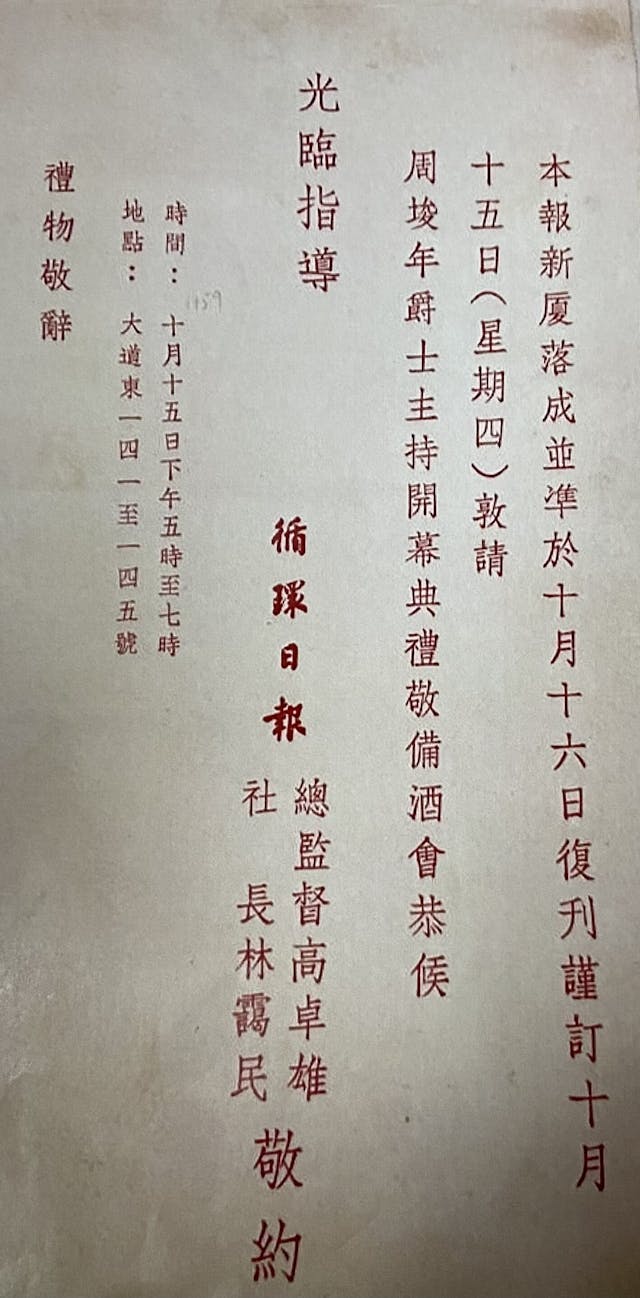 本報新廈落成並準於十月十六日復刊謹訂十月
十五日(星期四)敦請
周埈年爵士主持開幕典禮敬備酒會恭候
光臨指導
循環日報
總監督高卓雄
社長林靄民
敬約
時間：十月十五日下午五時至七時
地點：大道東一四一至一四五號
禮物敬辭